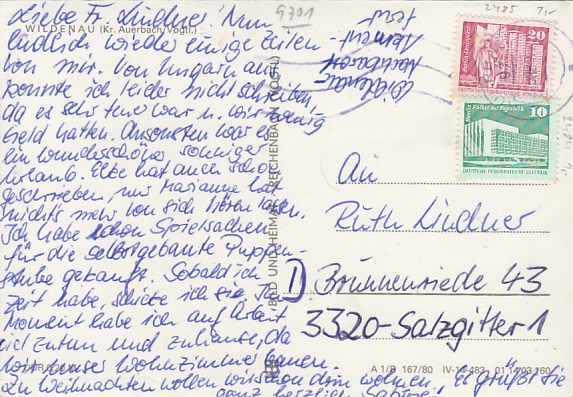 Liebe Fr. Lindner! Nun
endlich wieder einige Zeilen
von mir. Von Ungarn aus
konnte ich leider nicht schreiben,
da es sehr teuer war u. wir wenig
Geld hatten. Ansonsten war es
ein wunderschöner sonniger
Urlaub. Elke hat auch schon
geschrieben, nur Marianne hat
nichts mehr von sich hören lassen.
Ich habe schon Spielsachen
für die selbstgebaute Puppen-
stube gekauft. Sobald ich
Zeit habe, schicke ich sie. Im
Moment habe ich auf Arbeit
viel zu tun und zuhause, da
wir unser Wohnzimmer bauen.
Zu Weihnachten wollen wir schon drin wohnen. Es grüßt Sie
ganz herzlich Sabine
WILDENAU (Kr. Auerbach/Vogtl.)
9701
2485
20
DEUTSCHE DEMOKRATISCHE REPUBLIK
Berlin, Palast der Republik
10
DEUTSCHE DEMOKRATISCHE REPUBLIK
BILD UND HEIMAT REICHENBACH (VOGTL)
An
Ruth Lindner
D Brunnenriede 43
3320-Salzgitter 1
A 1/B 167/80 IV-14-483 01 14 03 160